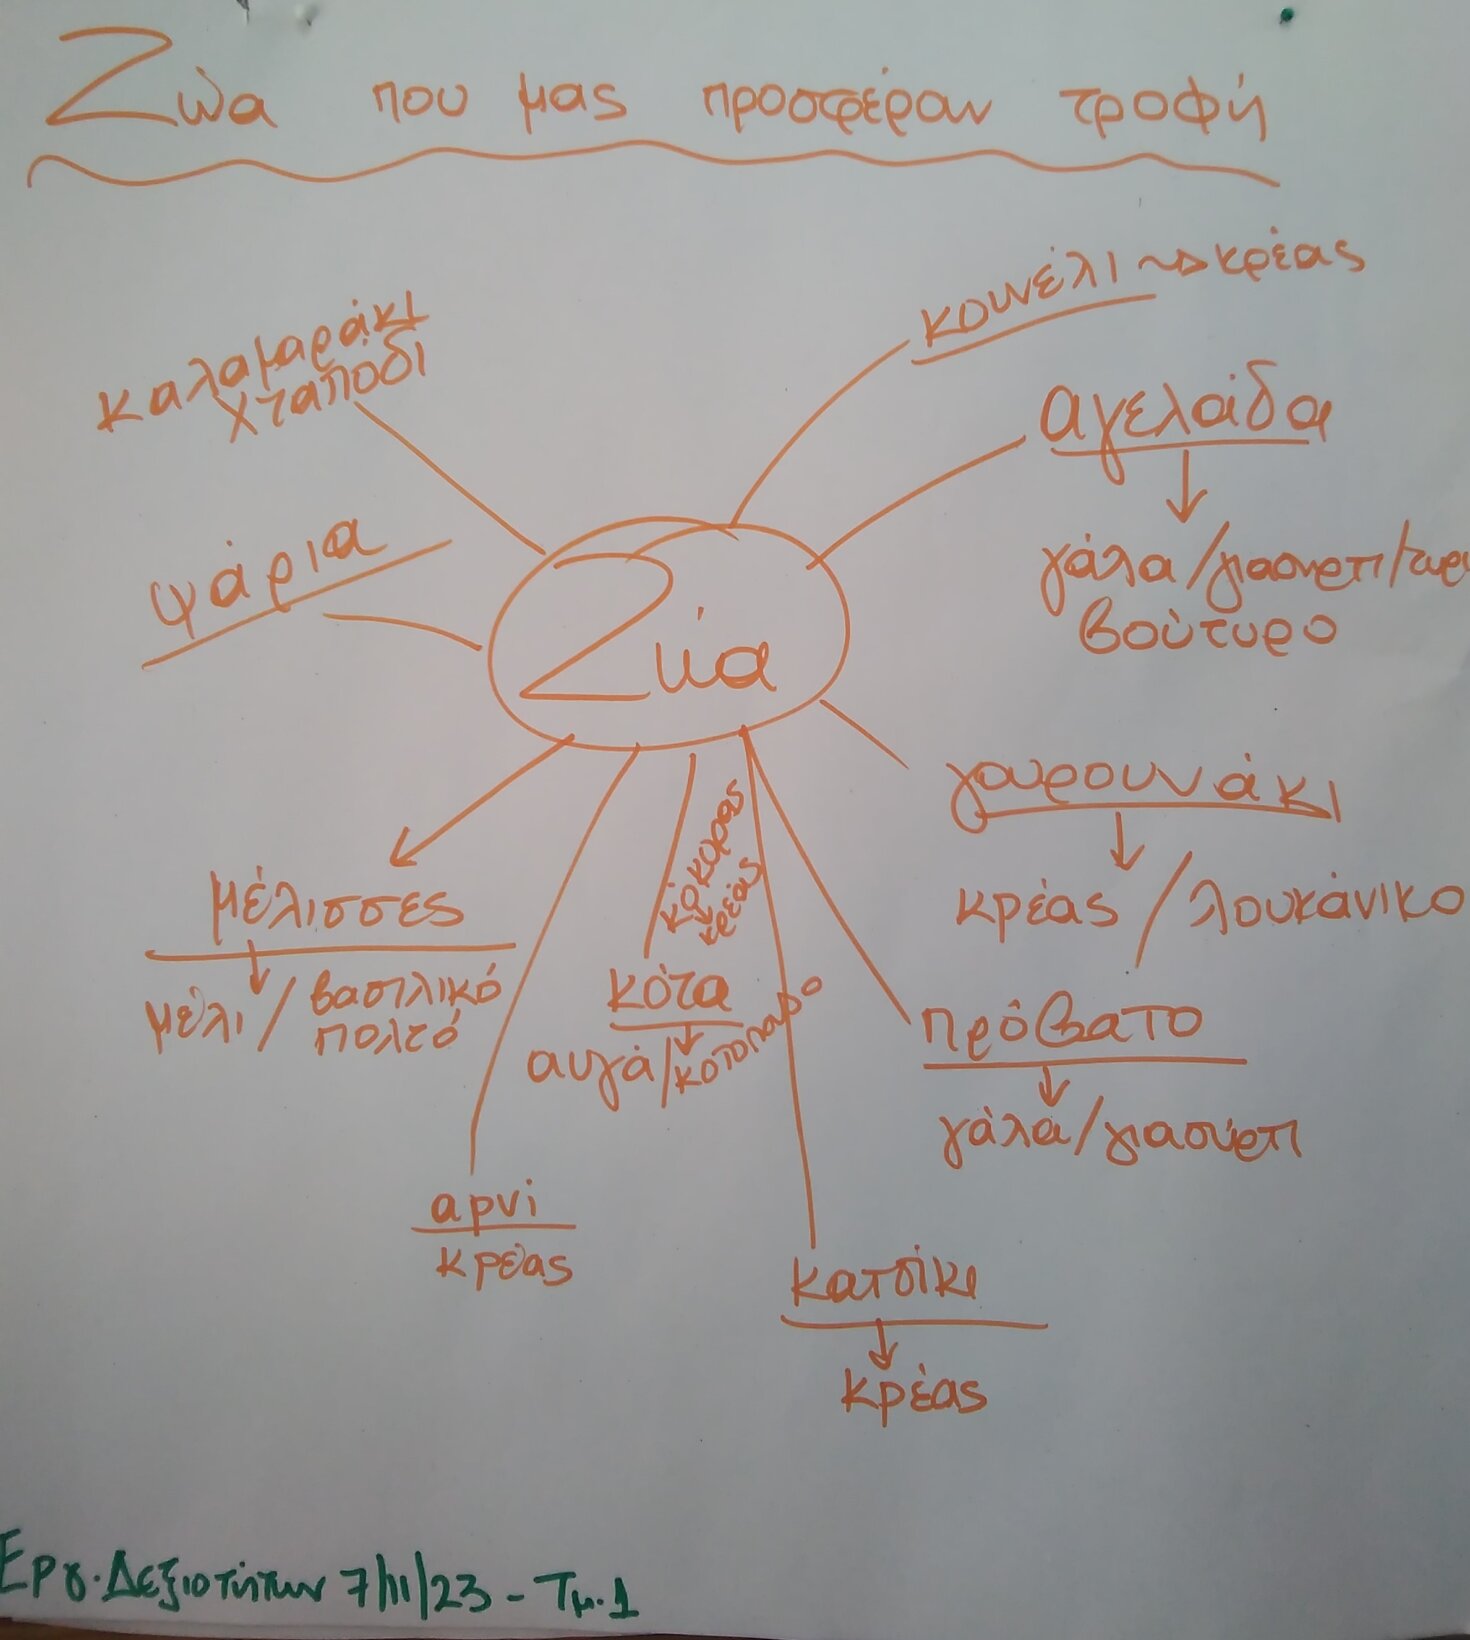 Ζώα που μας προσφέραν τροφή
κουνέλι κρέας
καλαμαράκι
χταπόδι
αγελάδα
γάλα/γιαούρτι/τυρι
βούτυρο
ψάρια
Ζώα
γουρουνάκι
κρέας / λουκάνικο
μέλισσες
μέλι / βασιλικό
πολτό
κόκορας
κρέας
κότα
αυγά/κοτόπουλο
πρόβατο
γάλα/γιαούρτι
αρνί
κρέας
κατσίκι
κρέας
Εργ. Δεξιοτήτων 7/11/23 - Τμ. 1